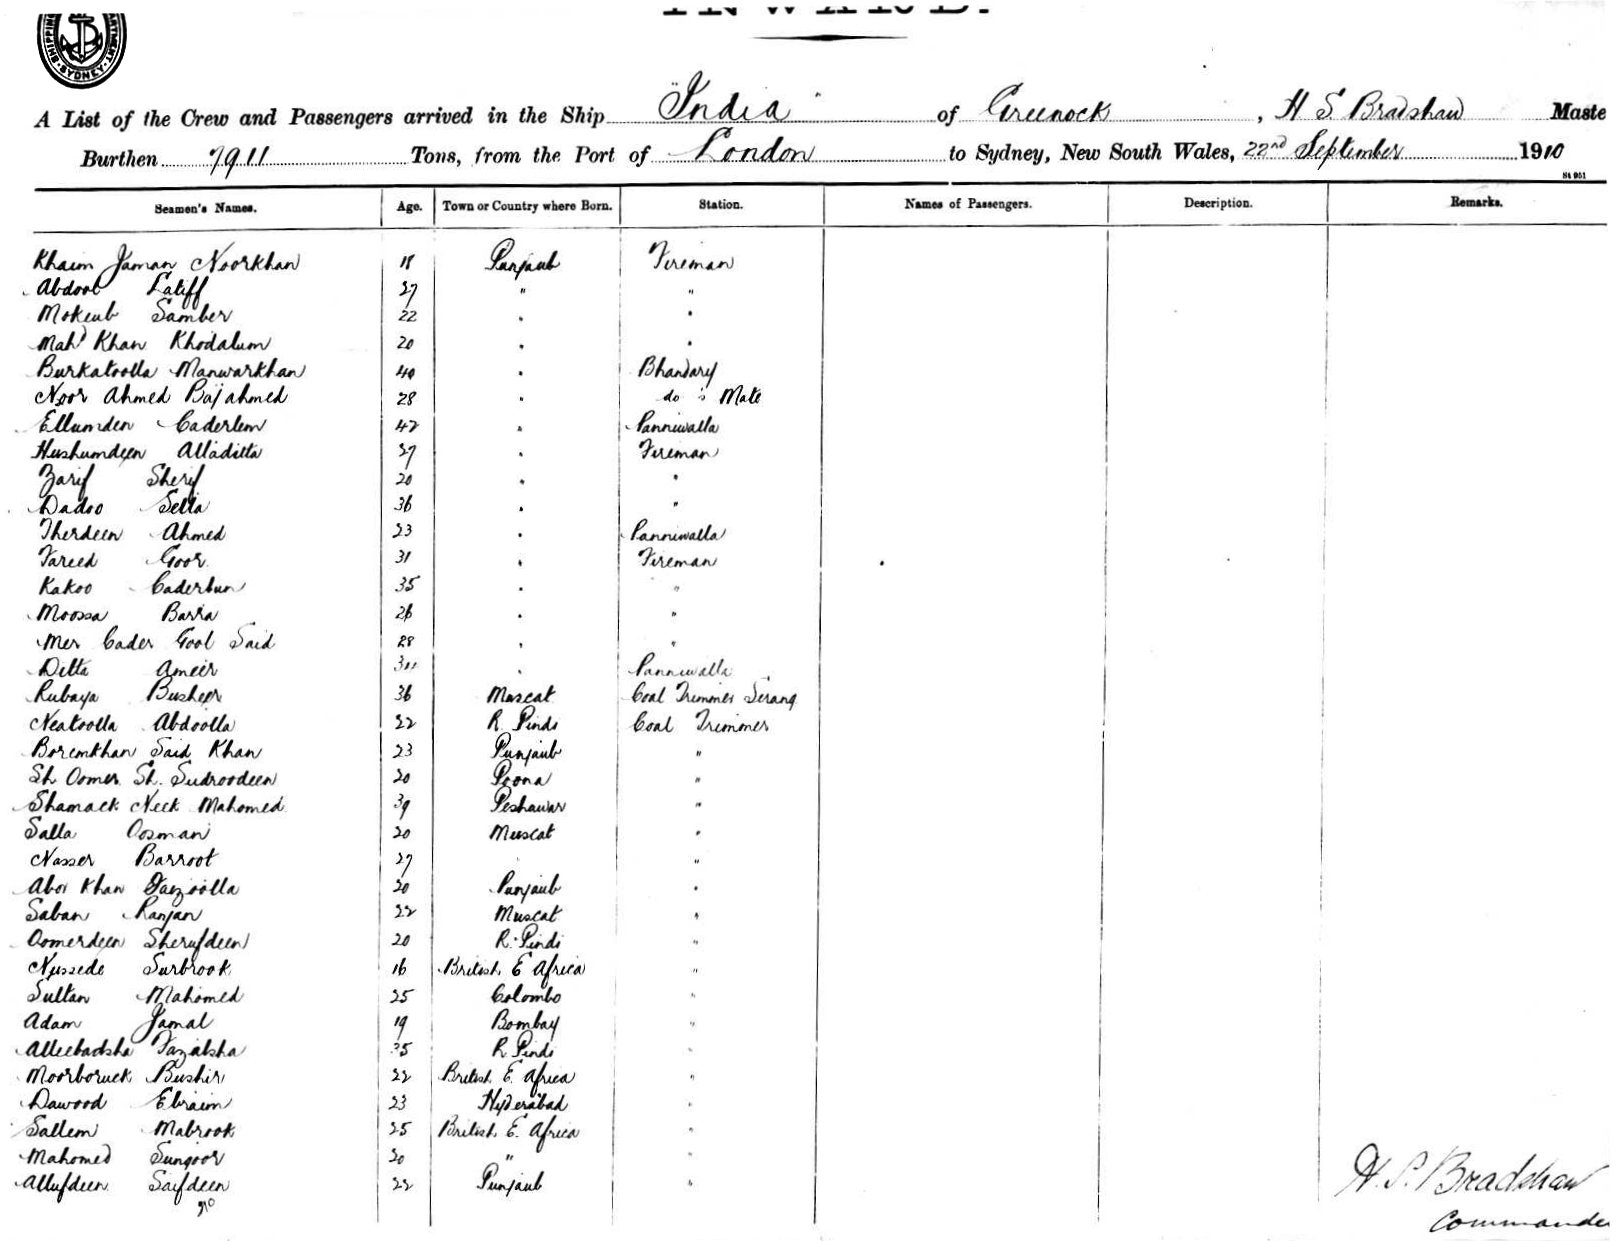 INWARD.
SHIPPING DEPARTMENT SYDNEY
A List of the Crew and Passengers arrived in the Ship "India" of Greenock, H S Bradshaw Maste
Burthen 7911 Tons, from the Port of London to Sydney, New South Wales, 22nd September 1910
St 951
Seamen's Names. Age. Town or Country where Born. Station. Names of Passengers. Description. Remarks.
Khaim Jaman Noorkhan 18 Punjaub Fireman
Abdool Latiff 27 " "
Mokeub Samber 22 " "
Mahd Khan Khodalum 20 " "
Burkatoolla Manwarkhan 40 " Bhandary
Noor Ahmed Bajahmed 28 " do 's Mate
Ellumden Caderlem 42 " Panniwalla
Hushumdeen Alladitta 27 " Fireman
Zarif Sherif 20 " "
Dadoo Sella 36 " "
Therdeen Ahmed 23 " Panniwalla
Fareed Goor 31 " Fireman
Kakoo Caderbun 35 " "
Moossa Barra 26 " "
Mer Cader Gool Said 28 " "
Ditta Ameer " Panniwalla
Rubaya Busheer 36 Muscat Coal Trimmer Serang
Neatoolla Abdoolla 22 R. Pindi Coal Trimmer
Boremkhan Said Khan 23 Punjaub "
Sh Oomer Sh. Sudroodeen 20 Poona "
Shamack Neek Mahomed 39 Peshawar "
Salla Oosman 20 Muscat "
Nasser Barroot 27 " "
Aboo Khan Faizoolla 20 Punjaub "
Saban Ranjan 22 Muscat "
Oomerdeen Sherufdeen 20 R. Pindi "
Nussede Surbrook 16 British E Africa "
Sultan Mahomed 25 Colombo "
Adam Jamal 19 Bombay "
Alleebadsha Fazalsha 35 R Pindi "
Moorboruck Bushir 22 British E. Africa "
Dawood Ebraim 23 Hyderabad "
Sallem Mabrook 25 British E. Africa "
Mahomed Sungoor 20 " "
Allufdeen Saifdeen 22 Punjaub "
H. S. Bradshaw
Commande